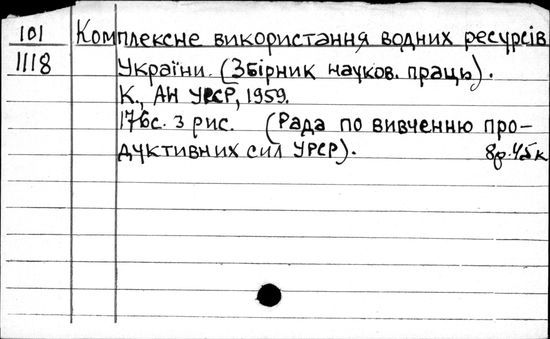 101 Комплексне використання водних ресурсів
1118 України. (Збірник науков. праць).
К., АН УРСР, 1959.
176с. з рис. (Рада по вивченню про-
дуктивних сил УРСР). 8р.45к